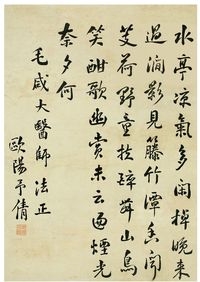 水亭涼氣多閑棹晚來
過澗影見籐竹潭香聞
芰荷野童扶醉舞山鳥
笑酣歌幽賞未云遍煙光
奈夕何
毛咸大醫師法正
歐陽予倩